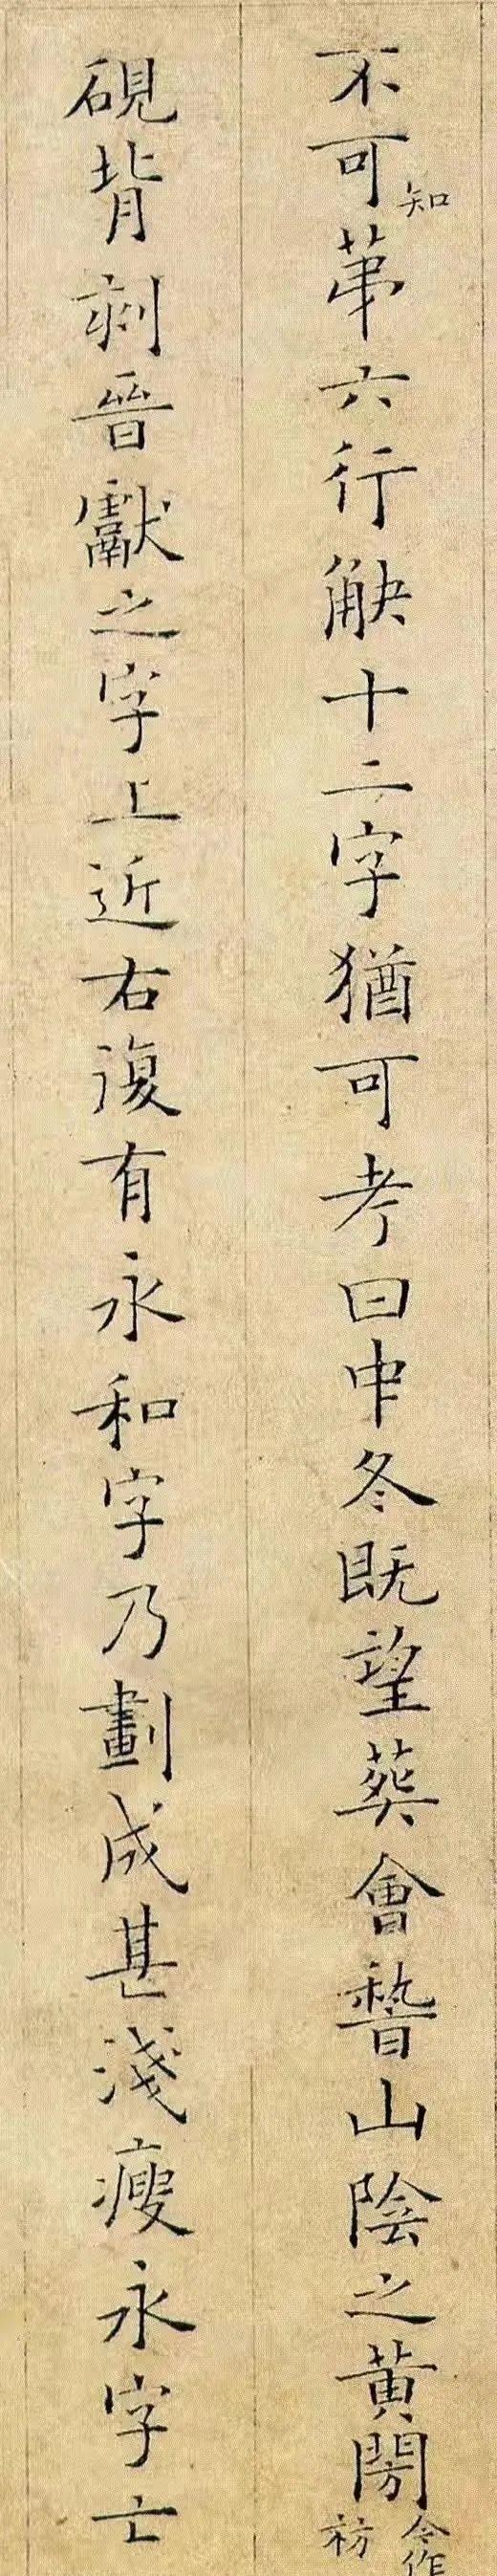 不可知苐六行觖十二字猶可考曰中冬既望葬會嵇山陰之黄閍今作祊
硯背刻晉獻之字上近右復有永和字乃劃成甚淺瘦永字亡